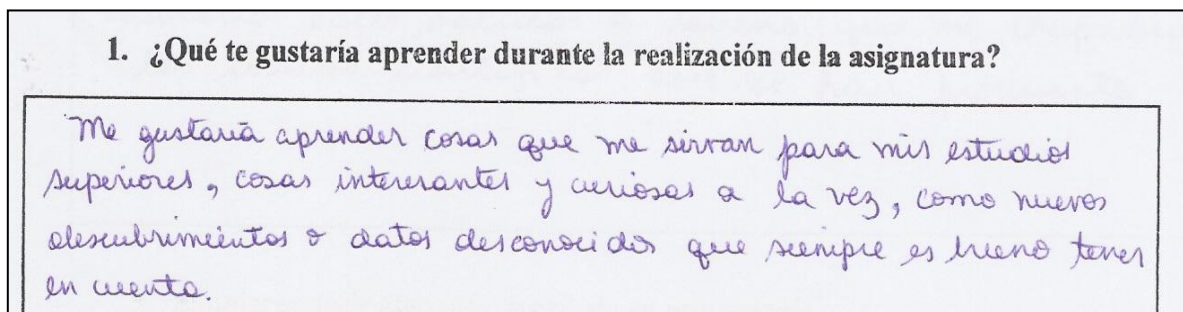 1. ¿Qué te gustaría aprender durante la realización de la asignatura?
Me gustaría aprender cosas que me sirvan para mis estudios
superiores, cosas interesantes y curiosas a la vez, como nuevos
descubrimientos o datos desconocidos que siempre es bueno tener
en cuenta.